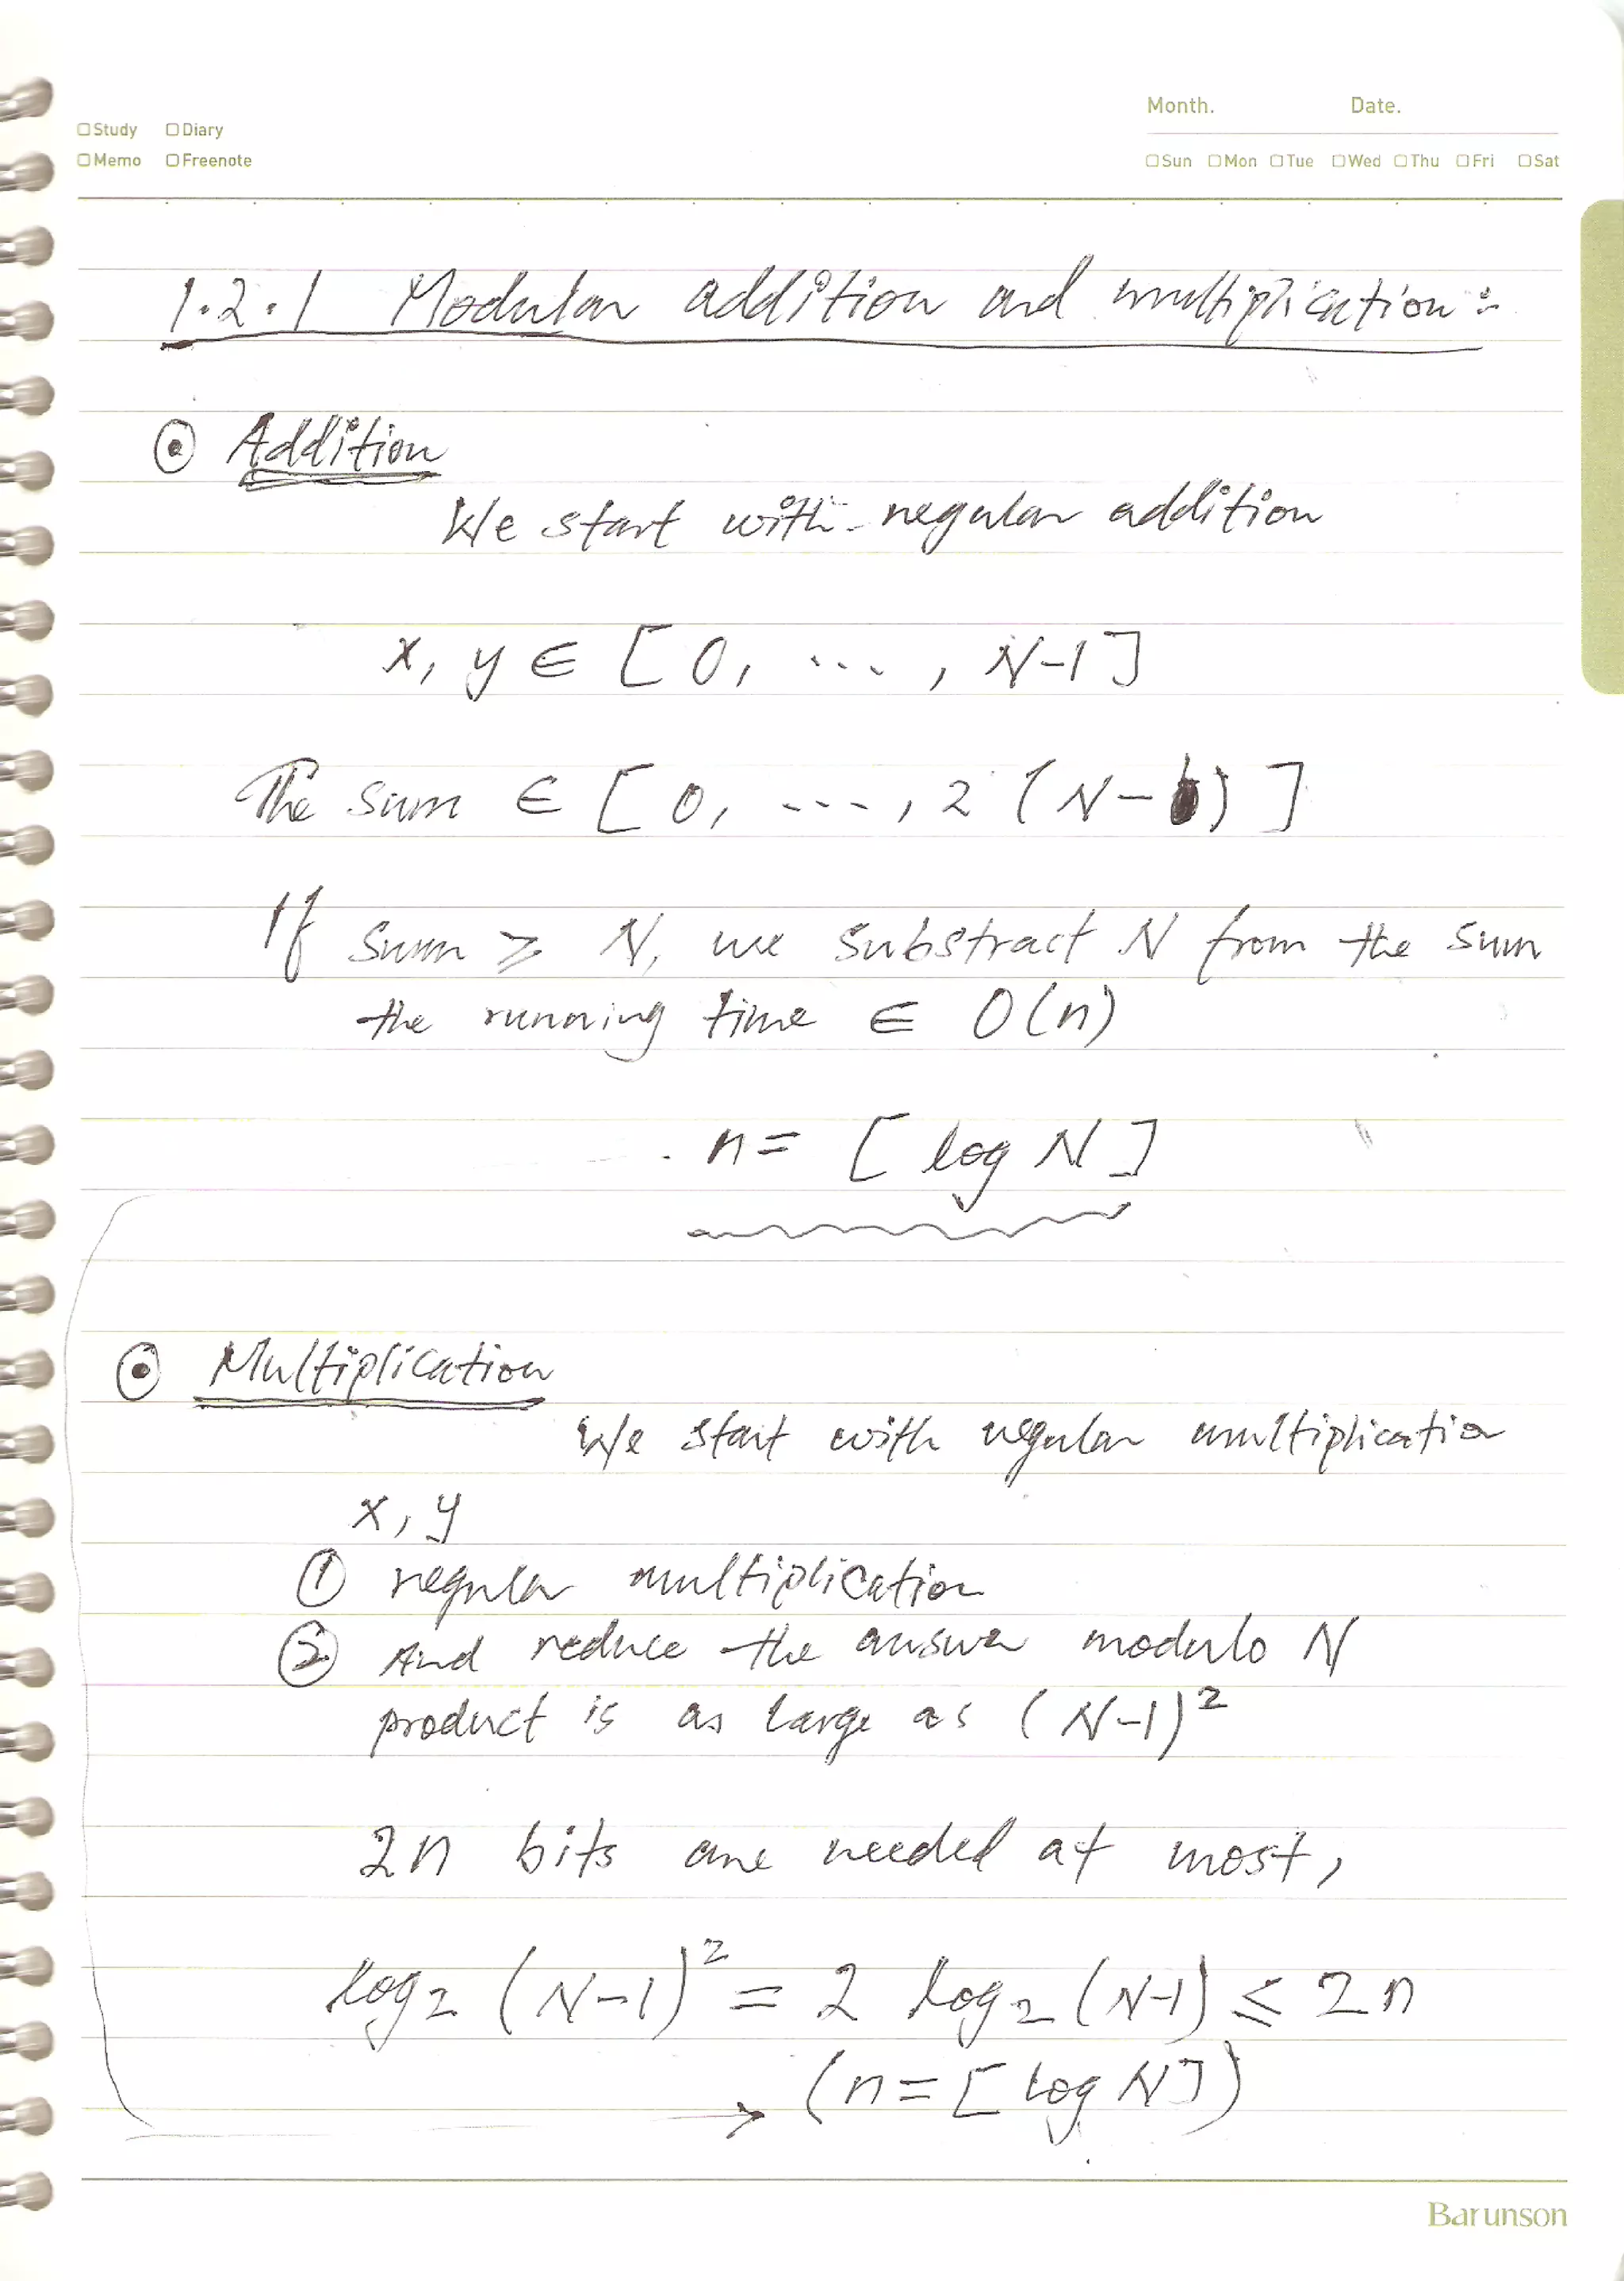 Month. Date.
□Study □Diary
□Memo □Freenote
□Sun □Mon □Tue □Wed □Thu □Fri □Sat
1.2.1 Modular addition and multiplication:
⊙ Addition
We start with regular addition
x, y ∈ [0, ..., N-1]
The sum ∈ [0, ..., 2(N-1)]
If sum ≥ N, we substract N from the sum
the running time ∈ O(n)
n = [log N]
⊙ Multiplication
We start with regular multiplication
x, y
① regular multiplication
② And reduce the answer modulo N
product is as large as (N-1)²
2n bits are needed at most,
log₂ (N-1)² = 2 log₂ (N-1) ≤ 2n
→ (n = [log N])
Barunson